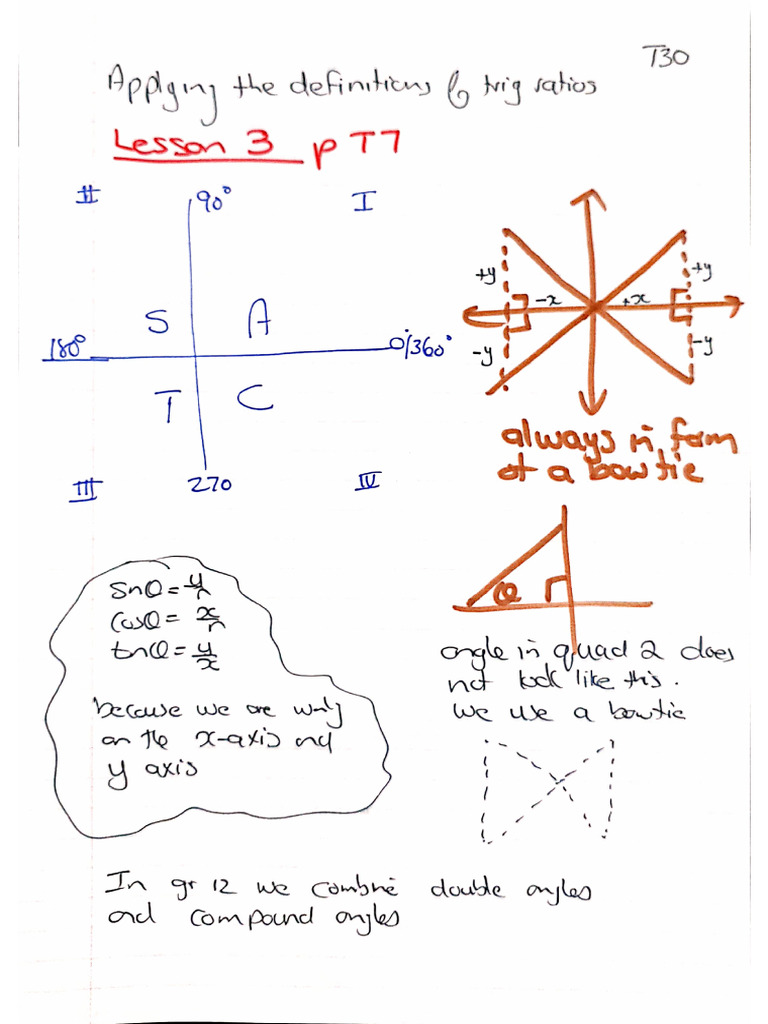 T30
Applying the definitions & trig ratios
Lesson 3 p T7
II
90°
I
S
A
180°
0°/360°
T
C
III
270
IV
+y
+y
-x
+x
-y
-y
always in form
of a bowtie
θ
sinθ = y/r
cosθ = x/r
tanθ = y/x
because we are working
on the x-axis and
y axis
angle in quad 2 does
not look like this.
We use a bowtie
In gr 12 we combine double angles
and compound angles